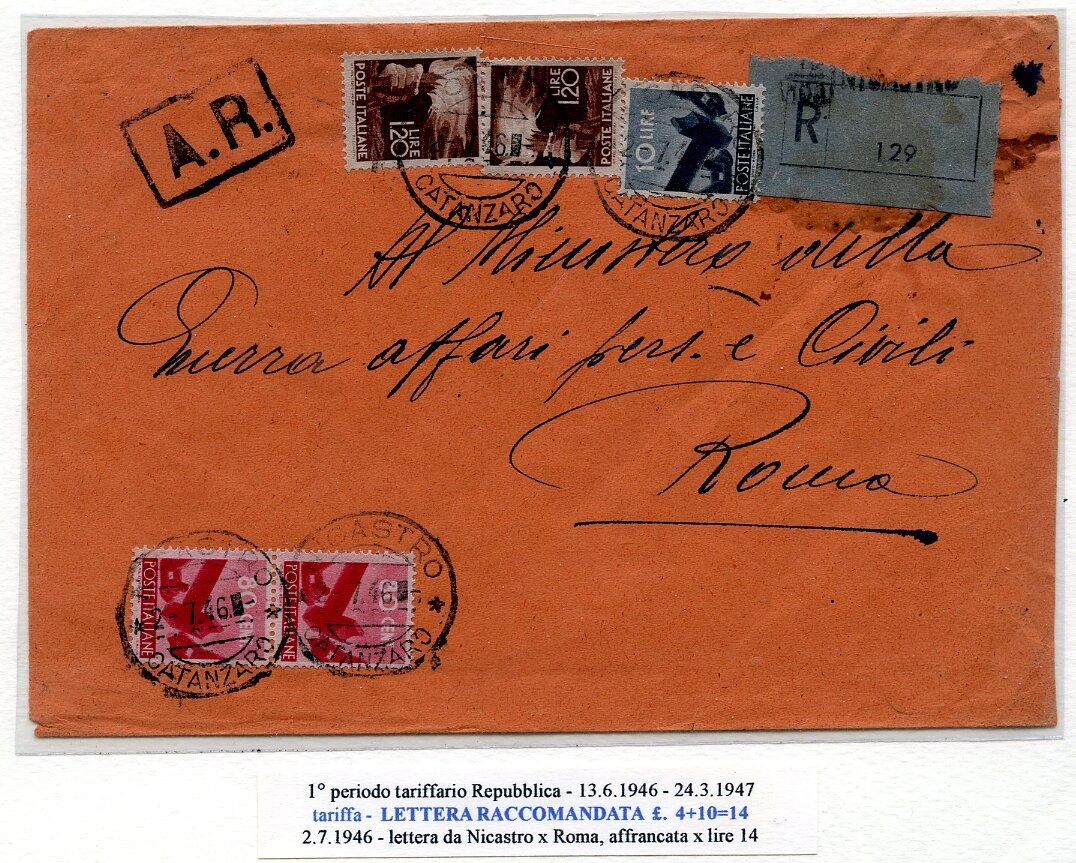 A.R.
POSTE ITALIANE
LIRE 1,20
LIRE 1,20
POSTE ITALIANE
10 LIRE
POSTE ITALIANE
R
129
CATANZARO
CATANZARO
Al Ministero della
Guerra affari pers. è Civili
Roma
NICASTRO
2-7.46
CATANZARO
CATANZARO
POSTE ITALIANE
80 CENT
POSTE ITALIANE
1° periodo tariffario Repubblica - 13.6.1946 - 24.3.1947
tariffa - LETTERA RACCOMANDATA £. 4+10=14
2.7.1946 - lettera da Nicastro x Roma, affrancata x lire 14